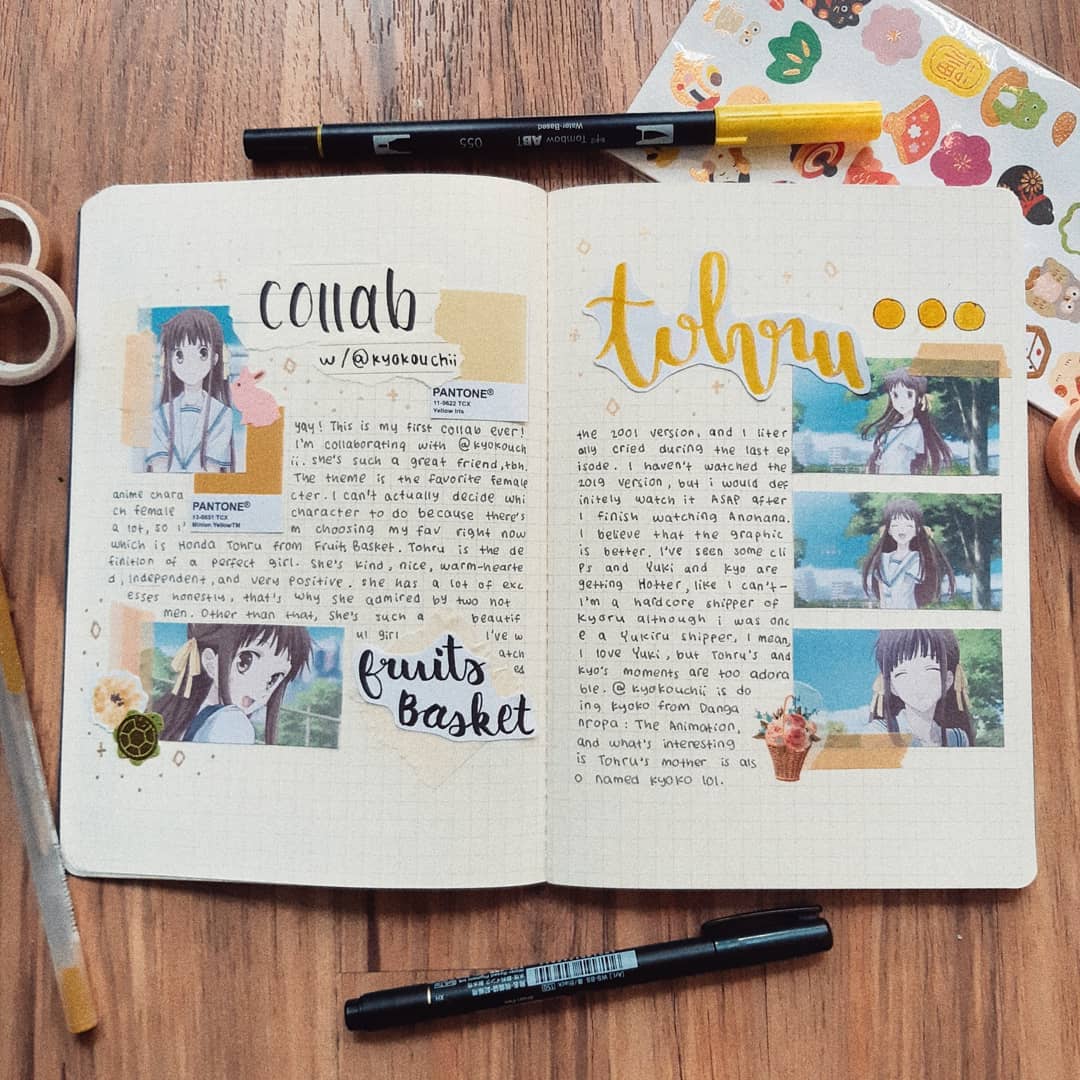 Water-Based
Tombow ABT
055
collab
w/@kyokouchii
PANTONE®
11-0622 TCX
Yellow Iris
yay! This is my first collab ever!
I'm collaborating with @kyokouch
ii. she's such a great friend, tbh.
The theme is the favorite female
anime chara cter. I can't actually decide whi
ch female character to do because there's
a lot, so I' m choosing my fav right now
PANTONE®
13-0651 TCX
Minion YellowTM
which is Honda Tohru from Fruits Basket. Tohru is the de
finition of a perfect girl. She's kind, nice, warm-hearte
d, independent, and very positive. she has a lot of exc
esses honestly, that's why she admired by two hot
men. Other than that, She's such a beautif
ul girl I've w
atch
ed
fruits
Basket
tohru
the 2001 version, and I liter
ally cried during the last ep
isode. I haven't watched the
2019 version, but i would def
initely watch it ASAP after
I finish watching Anohana.
I believe that the graphic
is better. I've seen some cli
ps and Yuki and Kyo are
getting Hotter, like I can't-
I'm a hardcore shipper of
Kyoru although i was onc
e a Yukiru shipper. I mean,
I love Yuki, but Tohru's and
Kyo's moments are too adora
ble. @kyokouchii is do
ing kyoko from Danga
nropa: The Animation,
and what's interesting
is Tohru's mother is als
o named Kyoko lol.